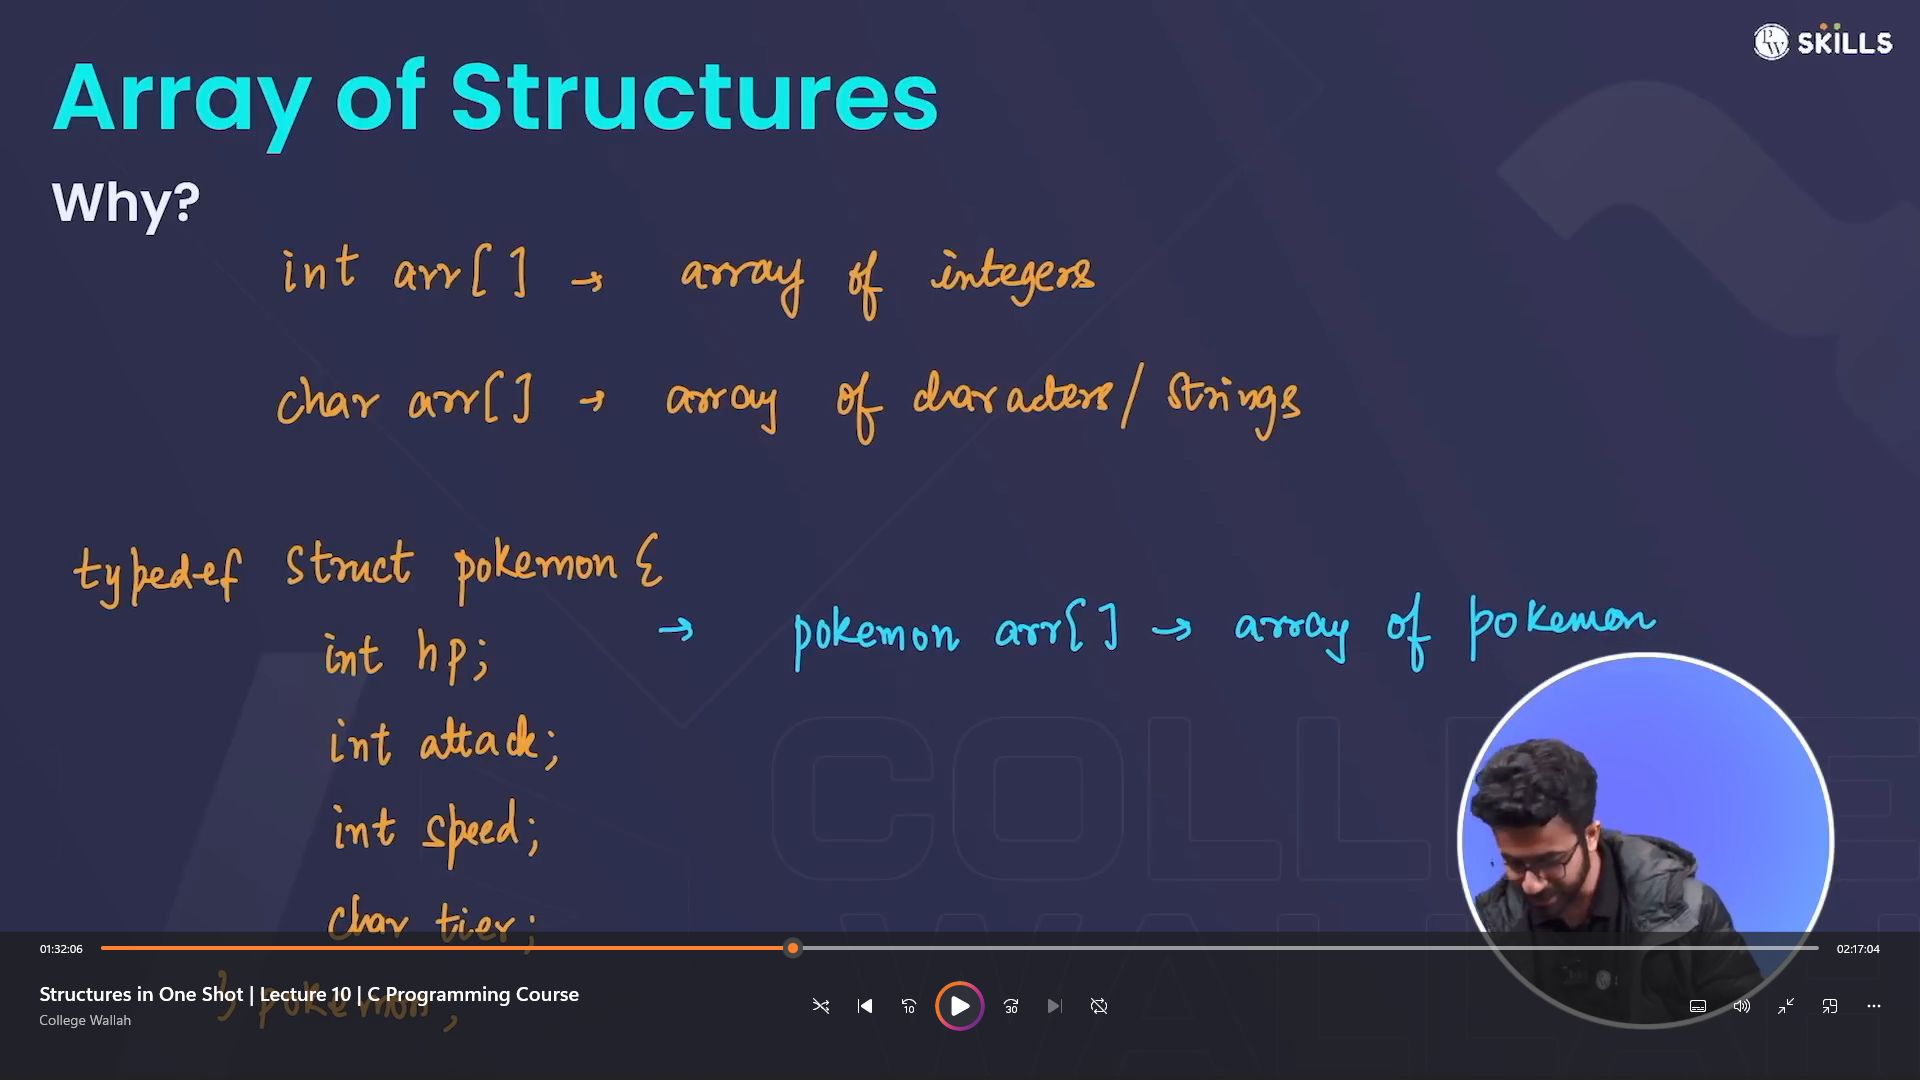 PW SKILLS
Array of Structures
Why?
int arr[ ] → array of integers
char arr[ ] → array of characters / strings
typedef struct pokemon {
int hp;
→ pokemon arr[ ] → array of pokemon
int attack;
int speed;
char tier;
} pokemon;
COLLEGE
WALLAH
01:32:06
02:17:04
Structures in One Shot | Lecture 10 | C Programming Course
College Wallah
10
30